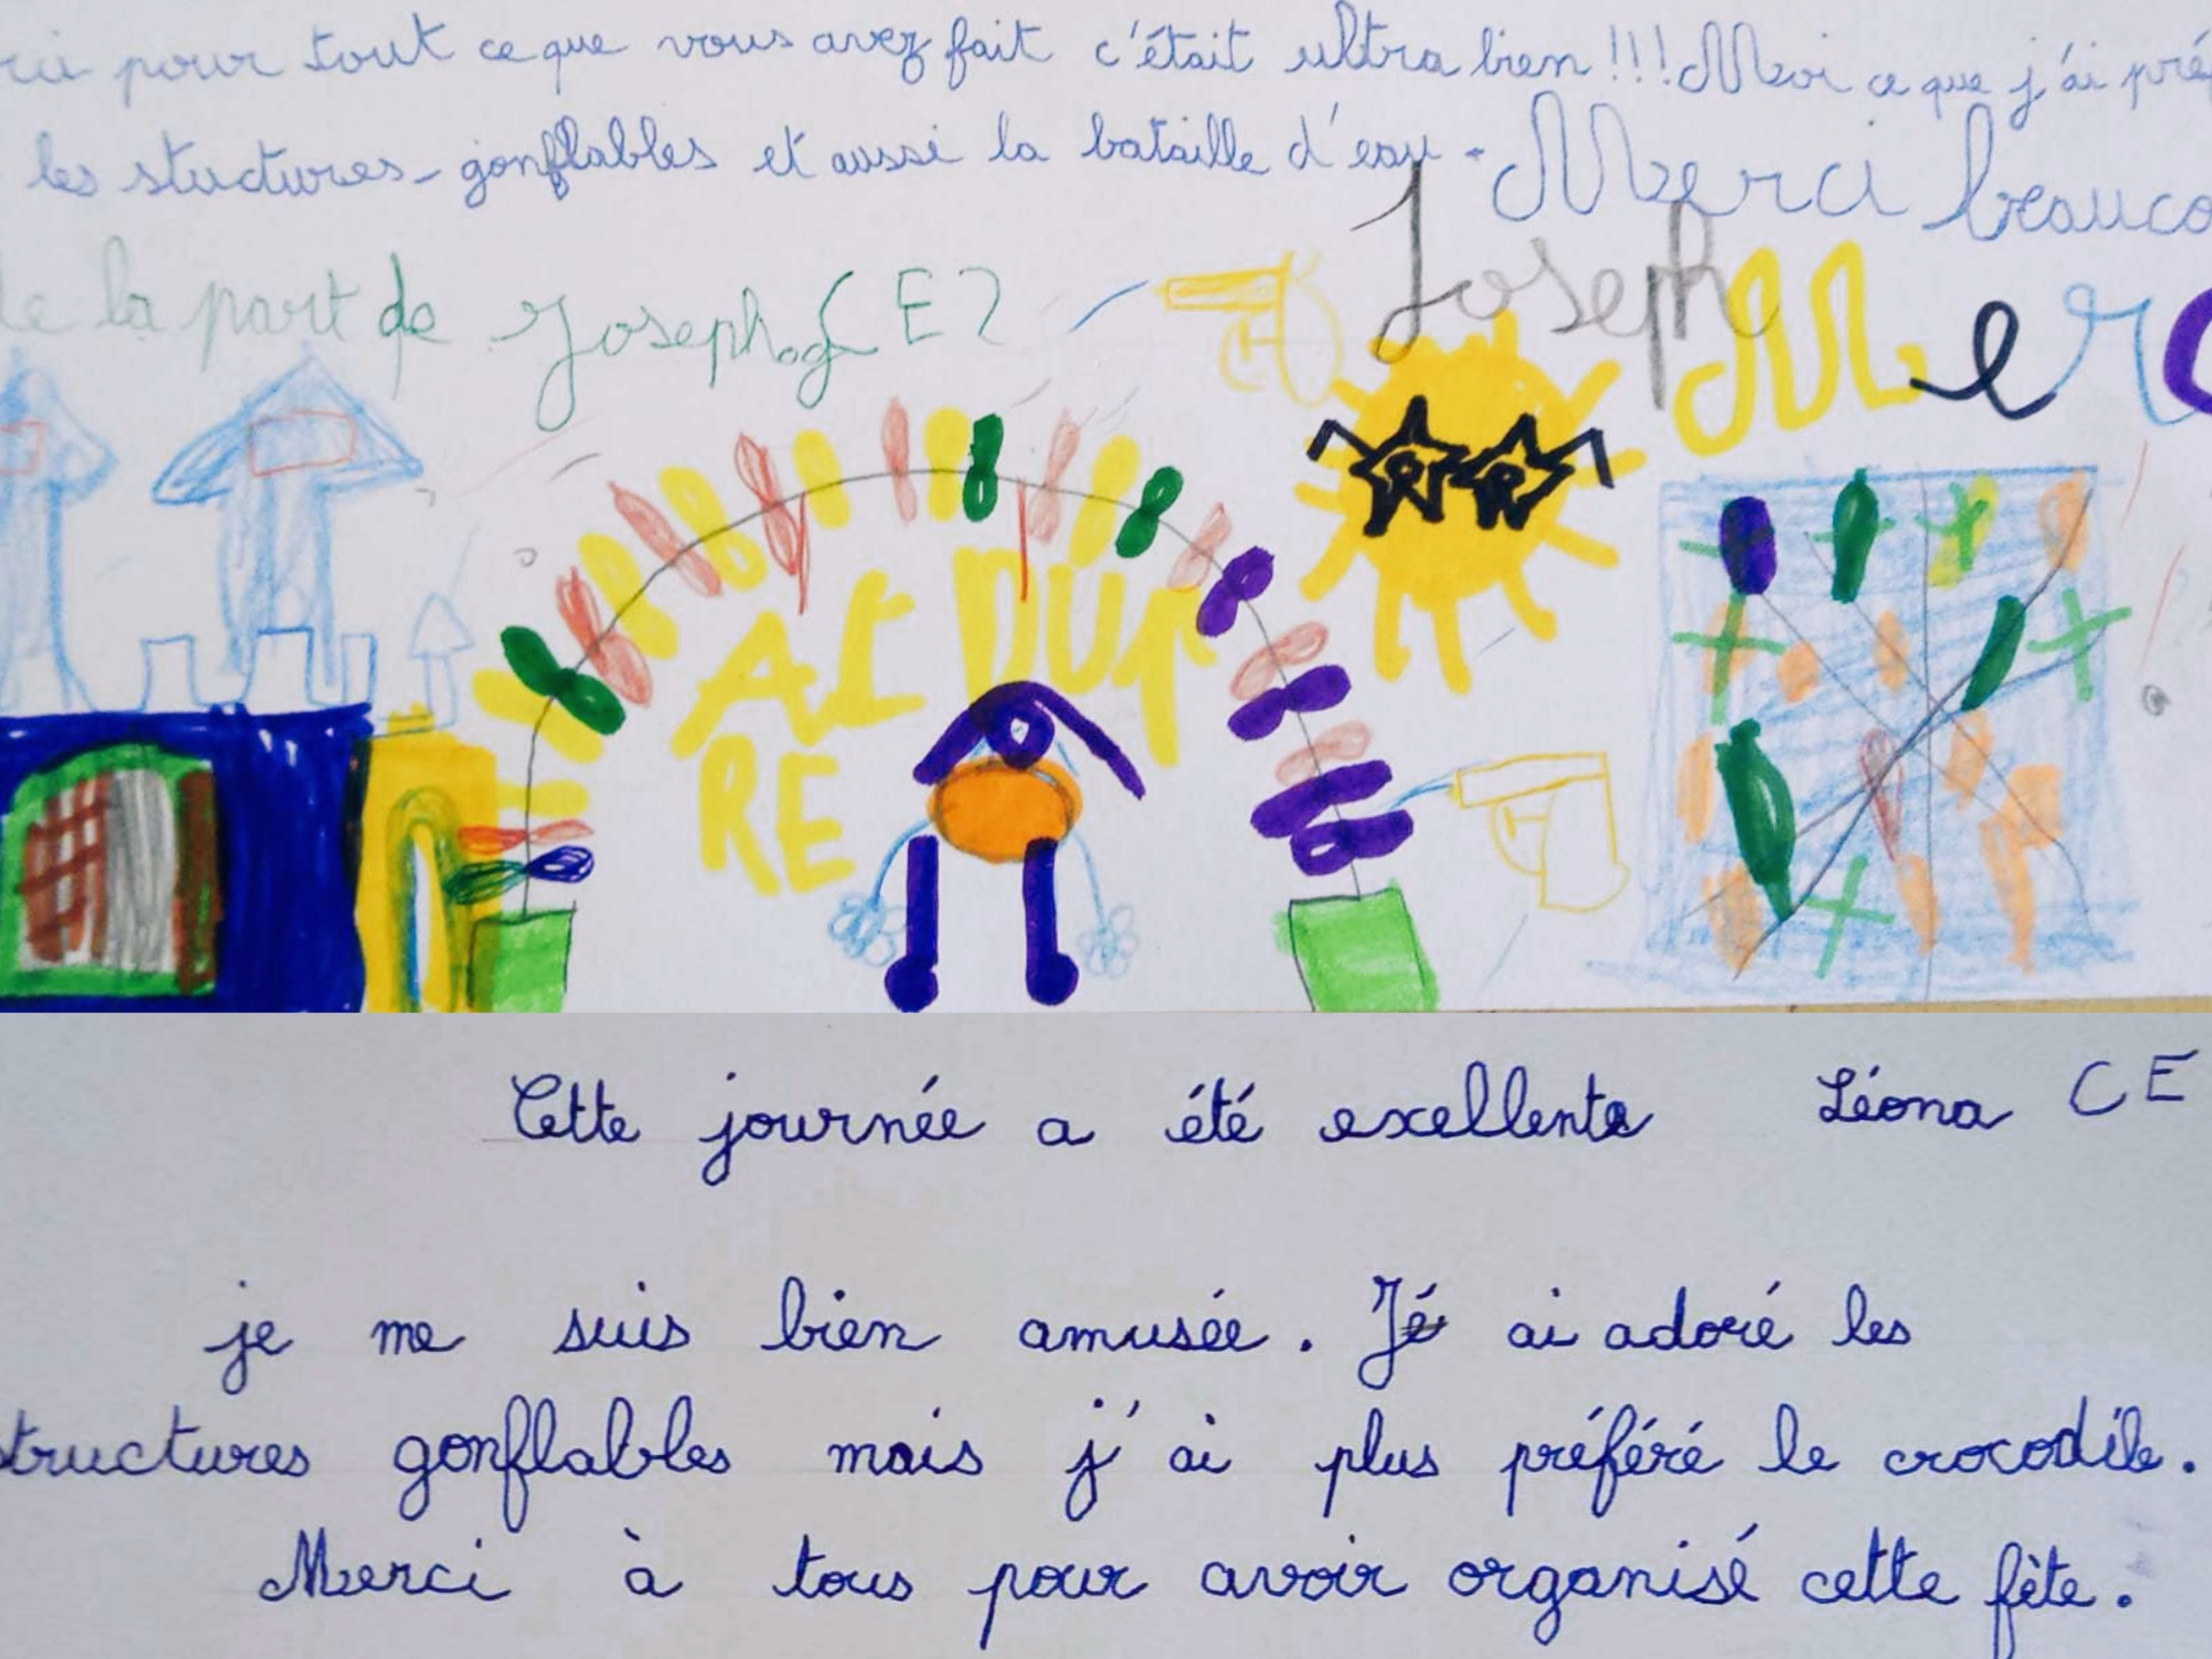 rci pour tout ce que vous avez fait c'était ultra bien !!! Moi ce que j'ai pré
les stuctures-gonflables et aussi la bataille d'eau. Merci beauco
de la part de Joseph CE2
Joseph
Merc
Cette journée a été exellente Léona CE
je me suis bien amusée. Jé ai adoré les
structures gonflables mais j'ai plus préféré le crocodile.
Merci à tous pour avoir organisé cette fête.